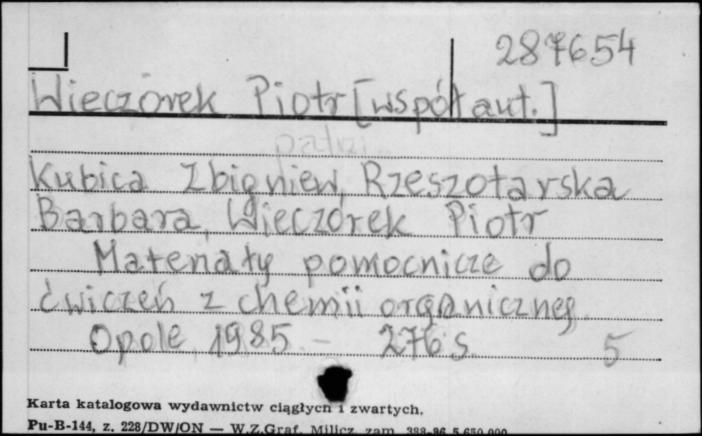 287654
Wieczorek Piotr [współaut.]
patrz
Kubica Zbigniew, Rzeszotarska
Barbara, Wieczorek Piotr
Materiały pomocnicze do
ćwiczeń z chemii organicznej.
Opole, 1985. - 276 s. 5
Karta katalogowa wydawnictw ciągłych i zwartych.
Pu-B-144, z. 228/DW/ON — W.Z.Graf. Milicz zam. 388-86 5.650.000